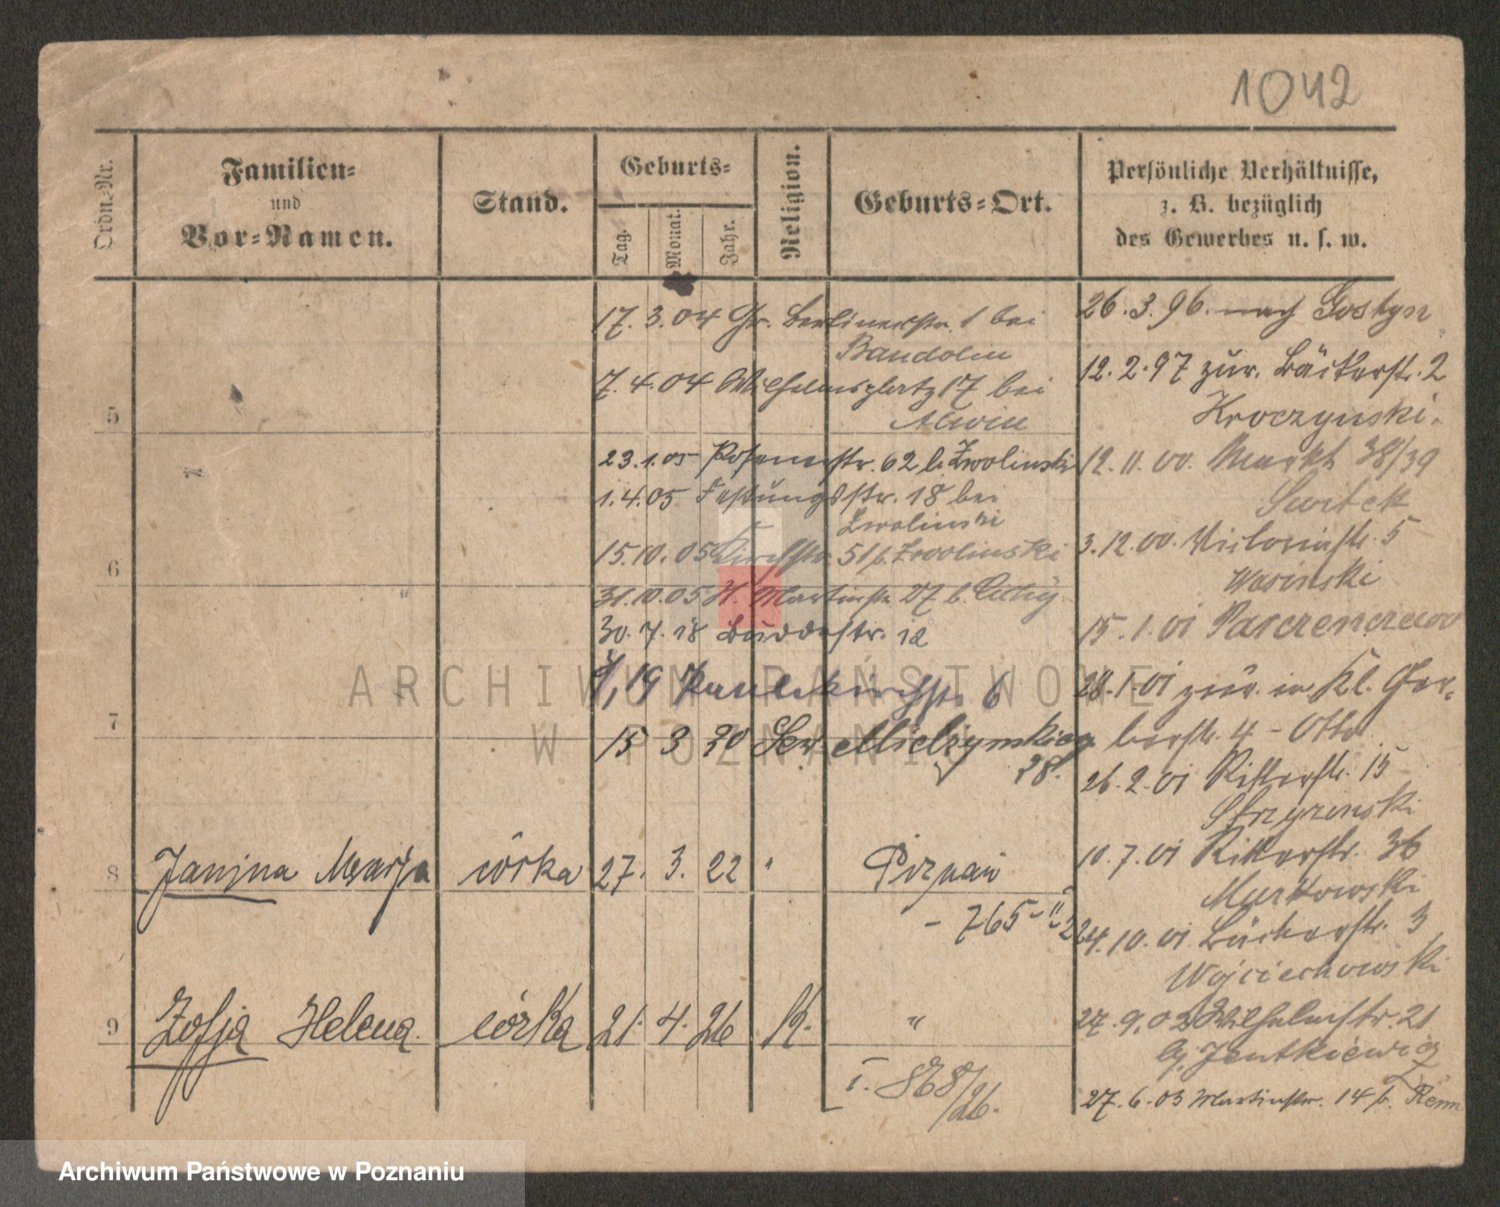 1042
Ordn.-Nr.
Familien-
und
Vor-Namen.
Stand.
Geburts-
Tag.
Monat.
Jahr.
Religion.
Geburts-Ort.
Persönliche Verhältnisse,
z. B. bezüglich
des Gewerbes u. s. w.
17. 3. 04 Gr. Berlinerstr. 1 bei
Bandolin
7. 4. 04 Wilhelmsplatz 17 bei
5
23. 1. 05 Posenerstr. 62 b. Zwolinski
1. 4. 05 Festungsstr. 18 bei
Zwolinski
15. 10. 05 Kirchstr. 51 b. Zwolinski
6
31. 10. 05 St. Martinstr. 27 b. Cichy
30. 7. 18 Buddestr. 12
19 Paulikirchstr. 6
7
15 3 20 Sew. Mielżynskiego
28.
8 Janina Marja córka 27. 3. 22 " Poznań
- 765 22
9 Zofja Helena córka 21. 4. 26 K. "
I. 868/26.
26. 3. 96. nach Gostyn
12. 2. 97 zur. Bäckerstr. 2
Kroczynski.
12. 11. 00. Markt 38/39
Switek
3. 12. 00. Victoriastr. 5
Wosinski
15. 1. 01
28. 1. 01 zur. in Kl. Ger-
berstr. 4 - Otto
26. 2. 01 Ritterstr. 15
Strzyzinski
10. 7. 01 Ritterstr. 36
Murkowski
24. 10. 01 Bäckerstr. 3
Wojciechowski
27. 9. 02 Wilhelmstr. 21
b. Jentkiewicz
27. 6. 03 Martinstr. 14 b. Renn
ARCHIWUM PAŃSTWOWE
W POZNANIU
Archiwum Państwowe w Poznaniu